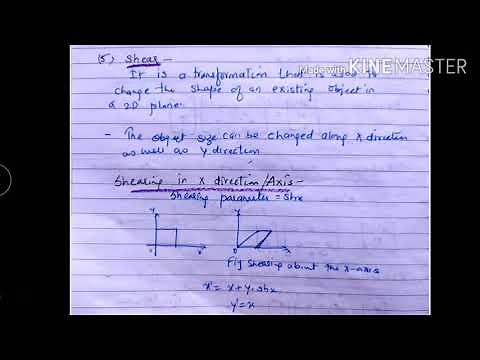 Made with KINEMASTER
(5) Shear -
It is a transformation that is used to
change the shape of an existing object in
a 2D plane.
- The object size can be changed along X direction
as well as Y direction
Shearing in X direction/Axis -
Shearing parameter = Shx
Y Y
0 X 0 X
Fig Shearing about the x-axis
x' = x + y. shx
y' = x